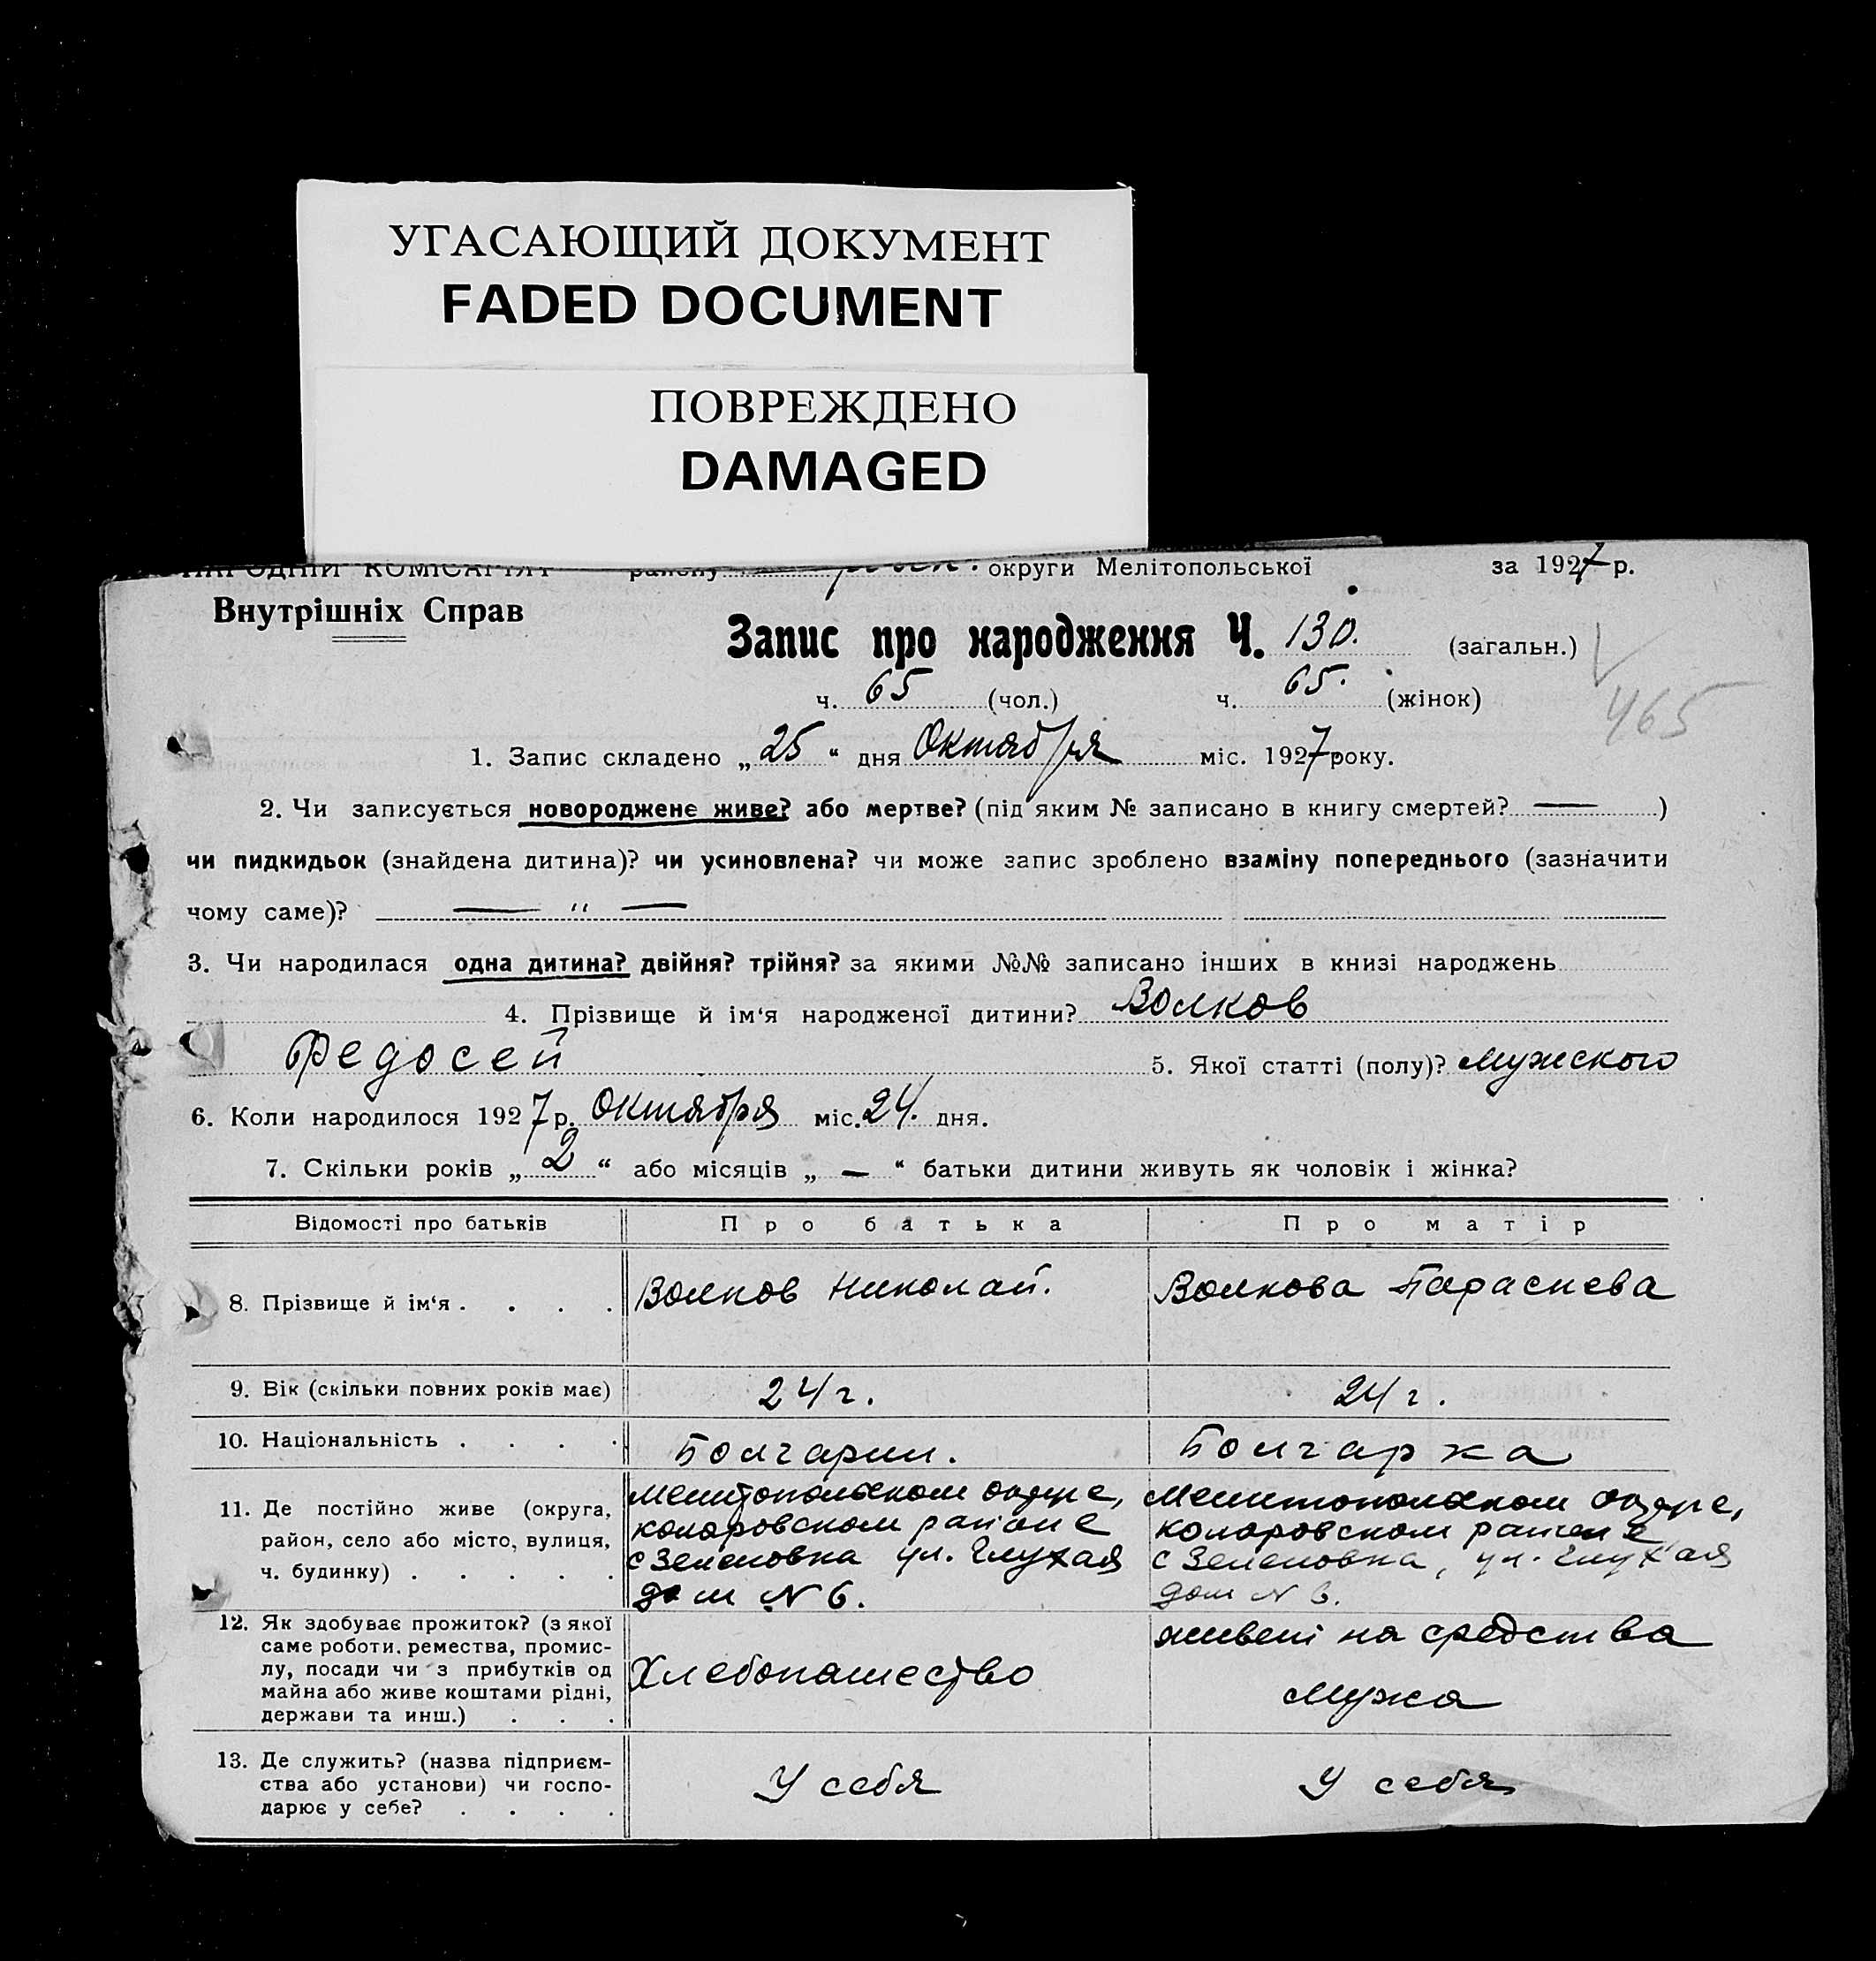 УГАСАЮЩИЙ ДОКУМЕНТ
FADED DOCUMENT
ПОВРЕЖДЕНО
DAMAGED
НАРОДНІЙ КОМІСАРІЯТ району округи Мелітопольської за 1927 р.
Внутрішніх Справ
Запис про народження Ч. 130. (загальн.)
465
ч. 65 (чол.) ч. 65. (жінок)
1. Запис складено „25“ дня Октября міс. 1927 року.
2. Чи записується новороджене живе? або мертве? (під яким № записано в книгу смертей? — )
чи пидкидьок (знайдена дитина)? чи усиновлена? чи може запис зроблено взаміну попереднього (зазначити
чому саме)? — " —
3. Чи народилася одна дитина? двійня? трійня? за якими №№ записано інших в книзі народжень
4. Прізвище й ім‘я народженої дитини? Волков
Федосей 5. Якої статті (полу)? мужского
6. Коли народилося 1927 р. Октября міс. 24. дня.
7. Скільки років „2“ або місяців „—“ батьки дитини живуть як чоловік і жінка?
Відомості про батьків Про батька Про матір
8. Прізвище й ім‘я . . . . Волков Николай. Волкова Параскева
9. Вік (скільки повних років має) 24 г. 24 г.
10. Національність . . . . Болгарин. Болгарка
11. Де постійно живе (округа, район, село або місто, вулиця, ч. будинку) . . . . .
Мелитопольском округе,
коларовском районе
с Зеленовка ул. Глухая
дом N 6.
Мелитопольском округе,
коларовском районе
с Зеленовка, ул. Глухая
дом N 6.
12. Як здобуває прожиток? (з якої
саме роботи, ремества, промис-
лу, посади чи з прибутків од
майна або живе коштами рідні,
держави та инш.) . . .
Хлебопашество
живет на средства
мужа
13. Де служить? (назва підприєм-
ства або установи) чи госпо-
дарює у себе? . . . .
У себя
У себя